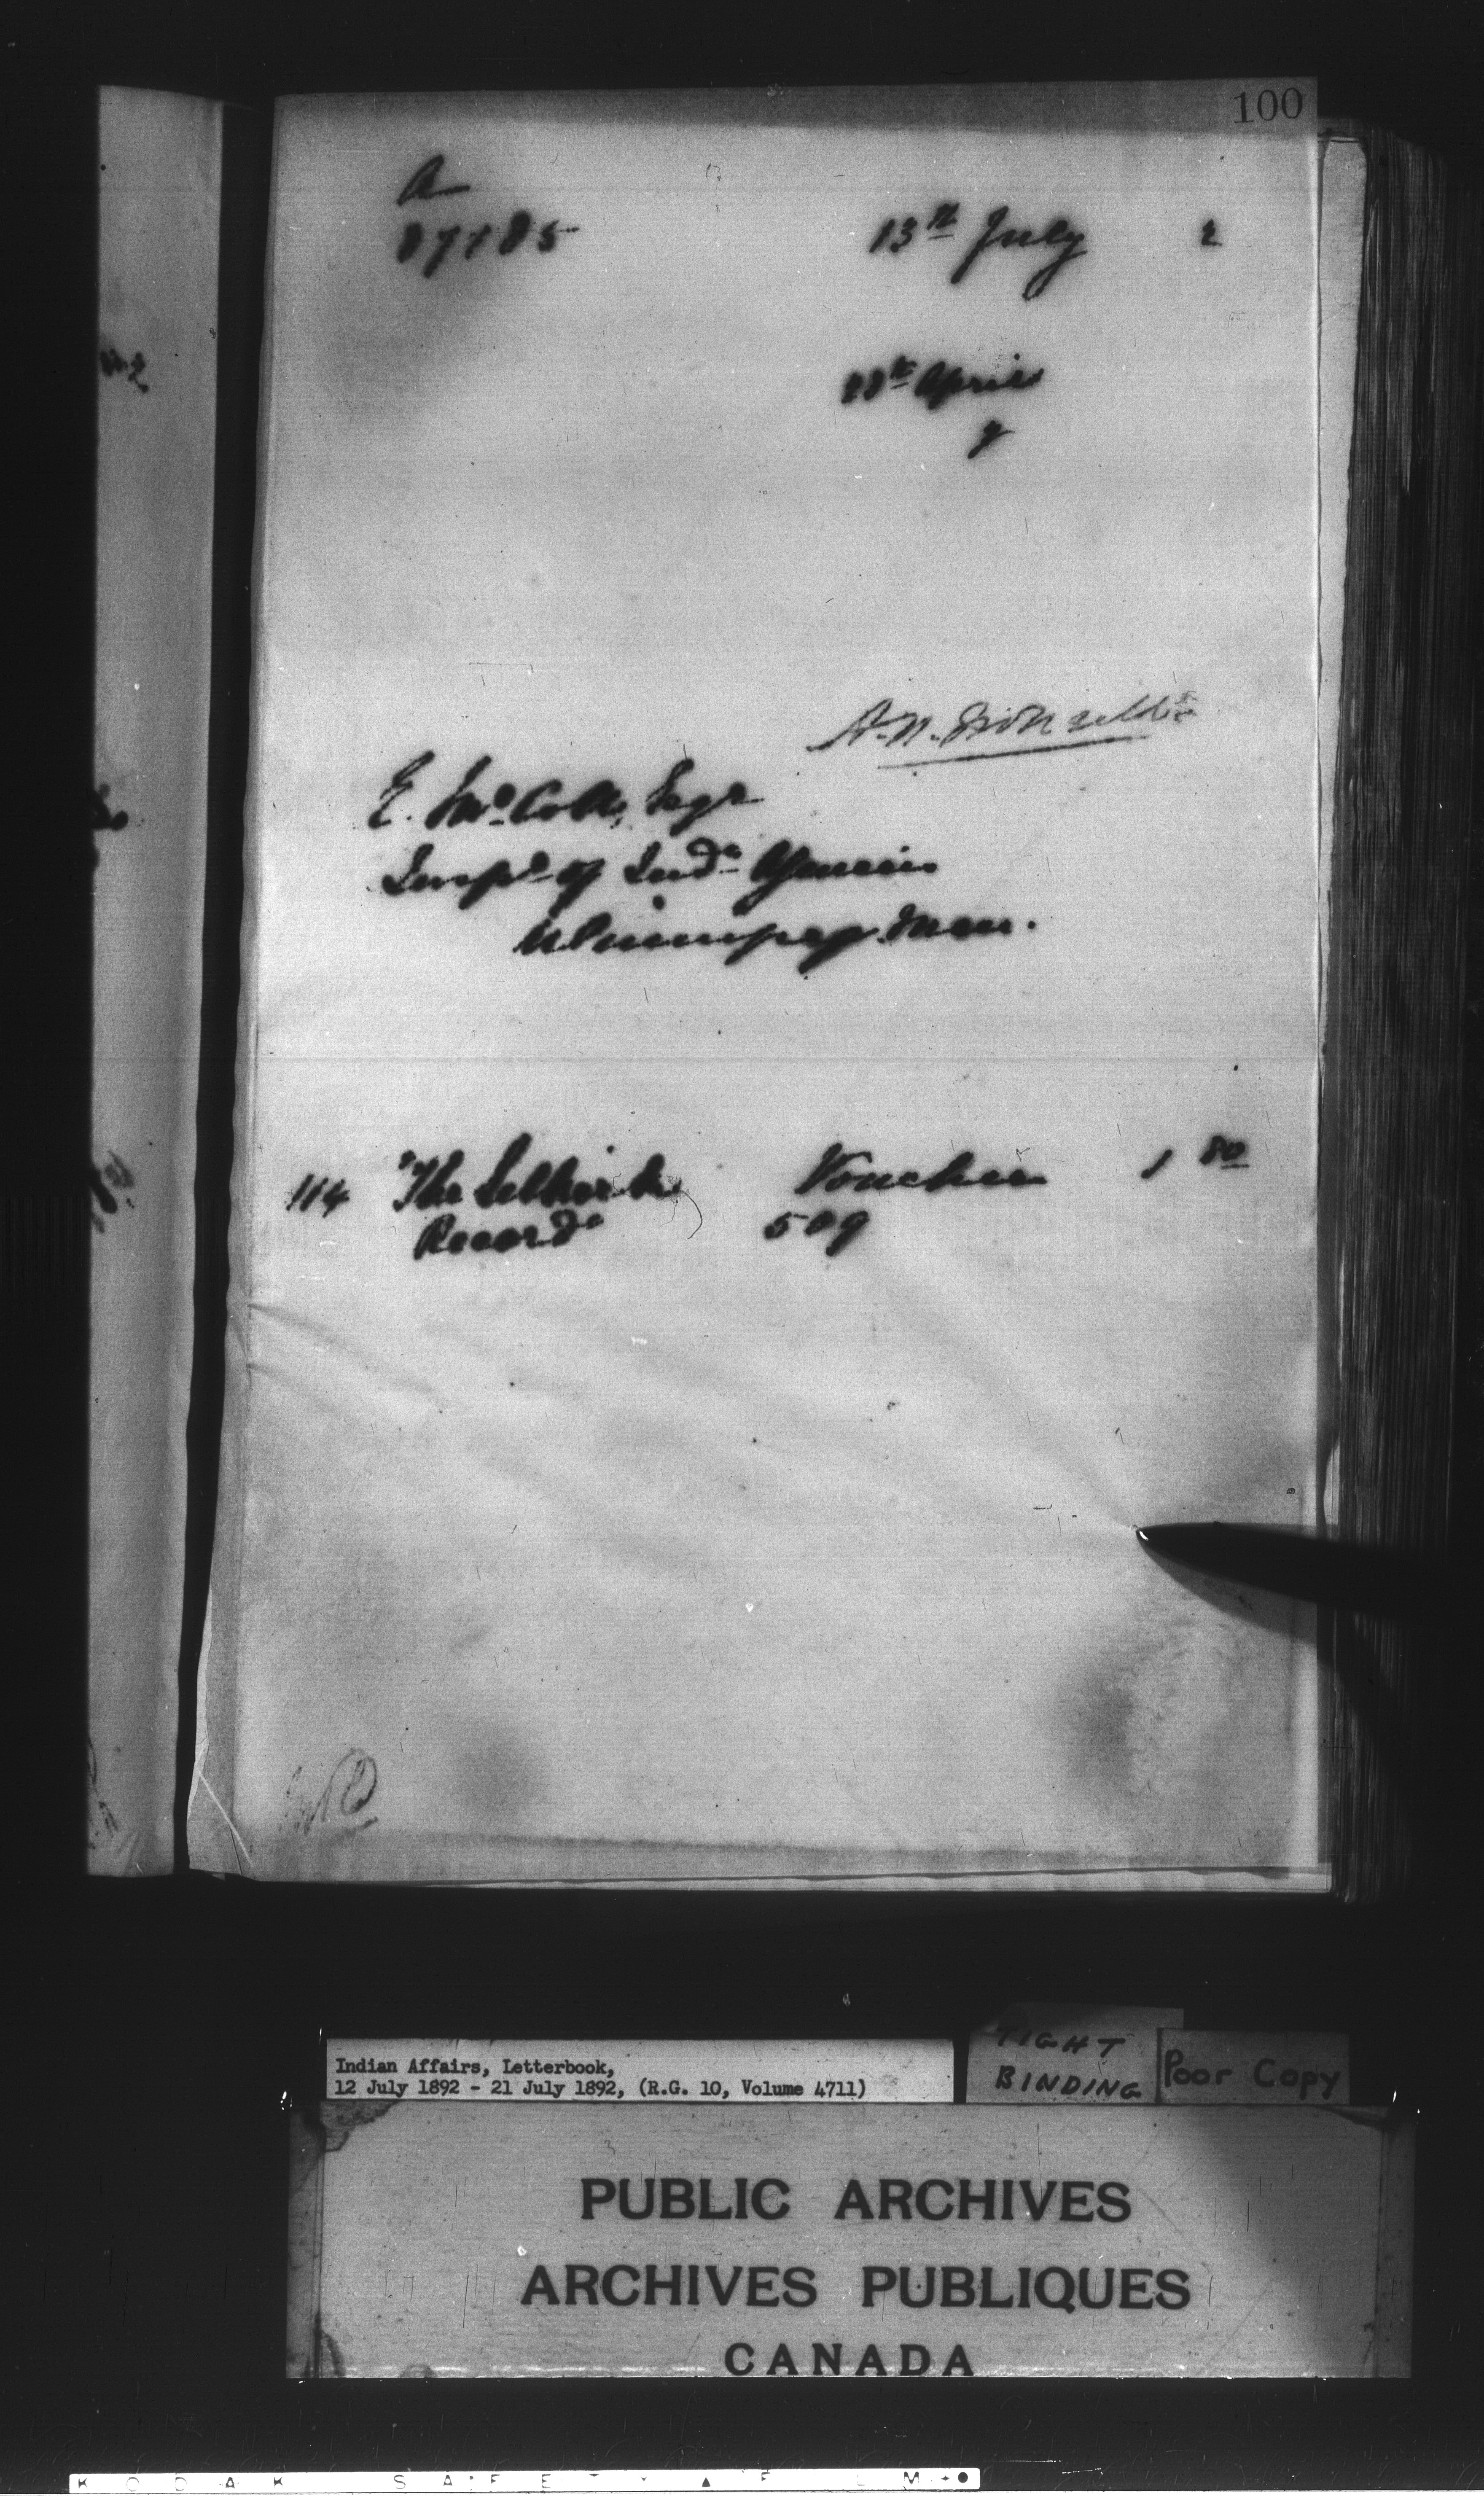 100
A
87185
13th July 2
28th April
E. McColl, Esqr
Insp. of Ind. Agencies
Winnipeg Man.
114 "The Selkirk Voucher 1 80
Record" 509
Indian Affairs, Letterbook,
12 July 1892 - 21 July 1892, (R.G. 10, Volume 4711)
TIGHT
BINDING
Poor Copy
PUBLIC ARCHIVES
ARCHIVES PUBLIQUES
CANADA
KODAK SAFETY ▲ FILM